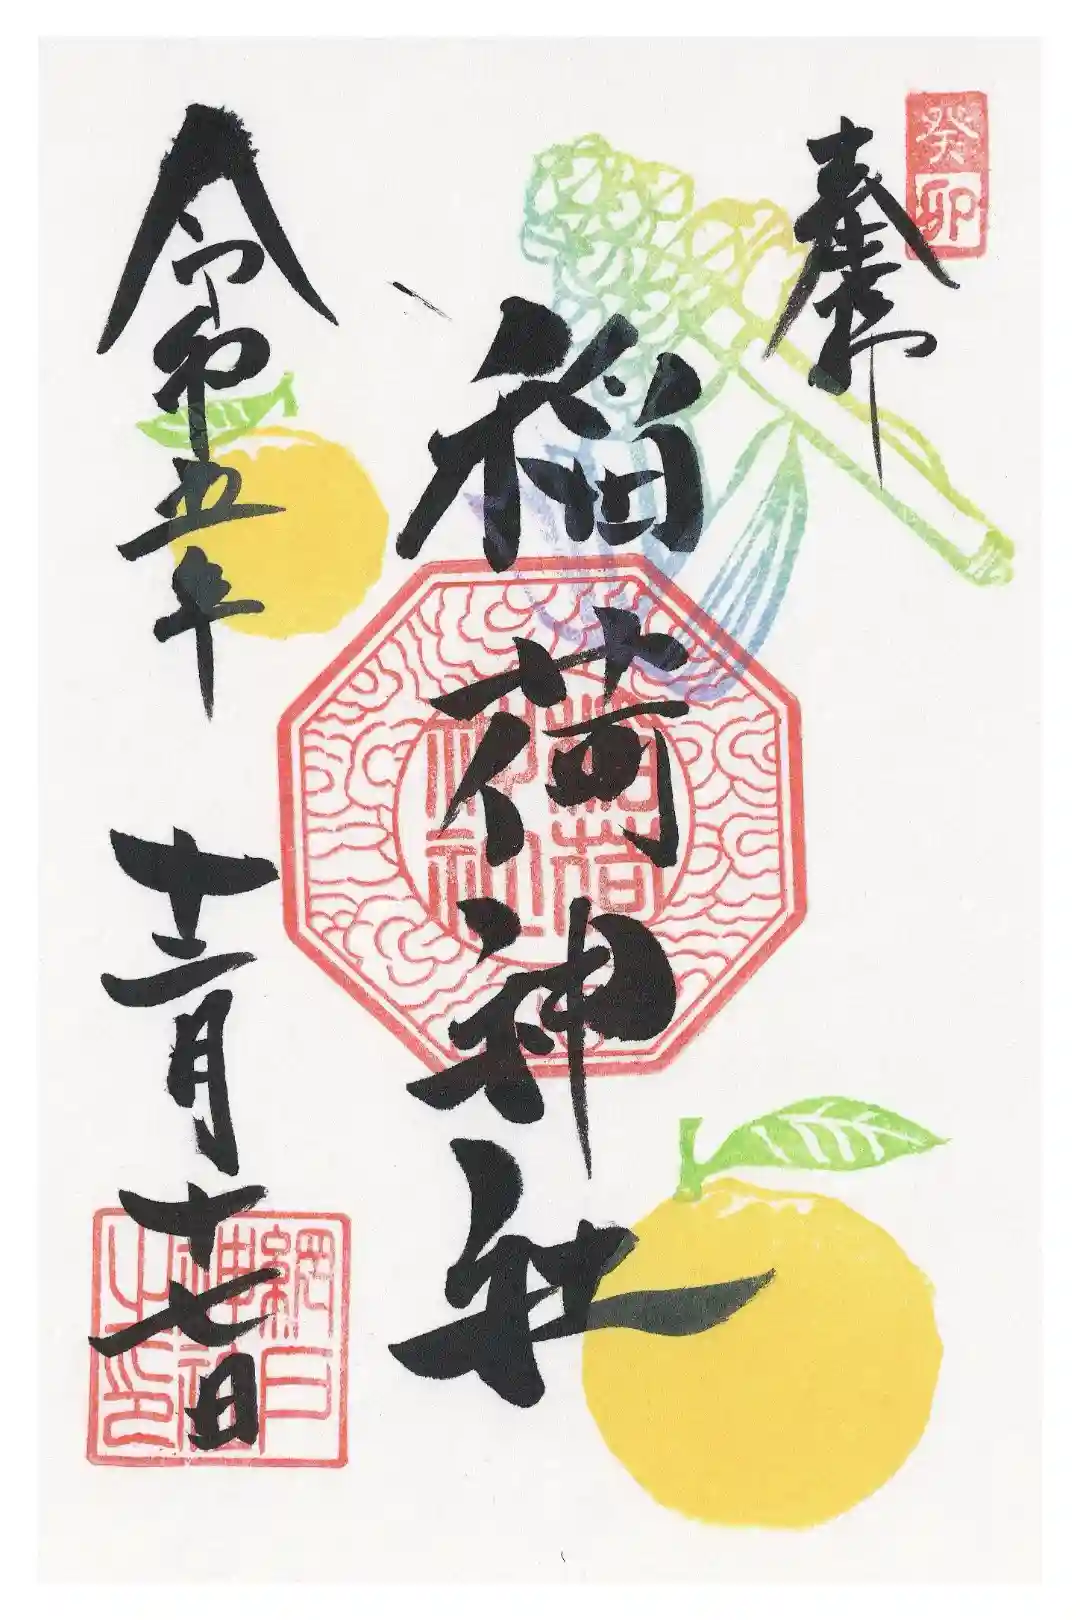 癸卯
奉拝
稲荷神社
稲荷神社
令和五年 十二月十七日
網戸神社之印